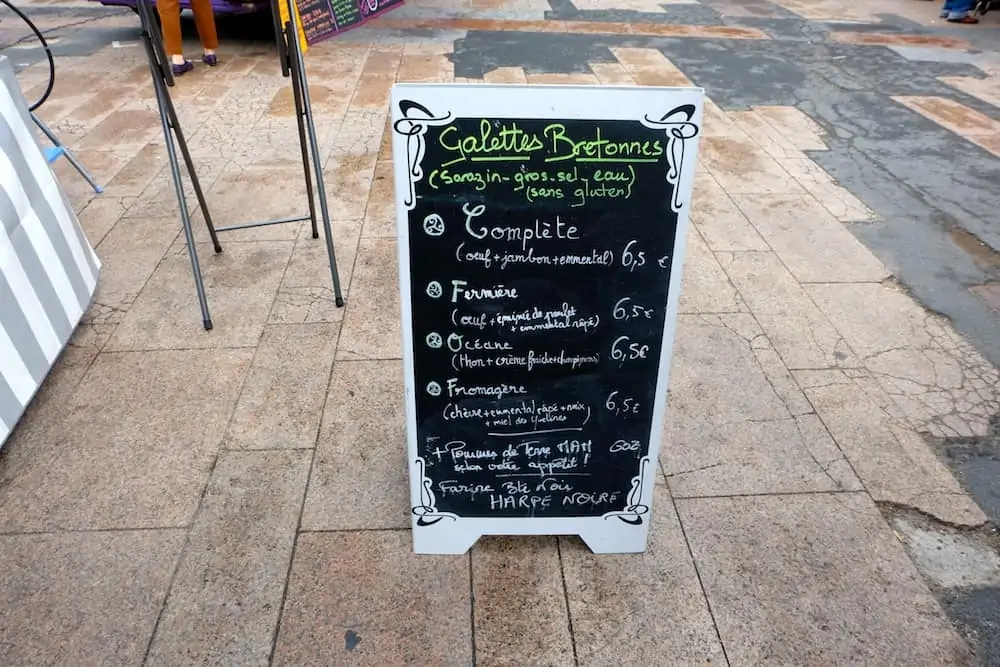 Galettes Bretonnes
(Sarazin-gros-sel-eau)
(sans gluten)
Complète
(œuf+jambon+emmental) 6,5 €
Fermière
(œuf+émincé de poulet
+emmental râpé) 6,5€
Océane
(thon+crème fraîche+champignons) 6,5€
Fromagère
(chèvre+emmental râpé+noix
+miel des Yvelines) 6,5€
+ Pommes de Terre MAM GOZ
selon votre appétit!
Farine Blé Noir
HARPE NOIRE